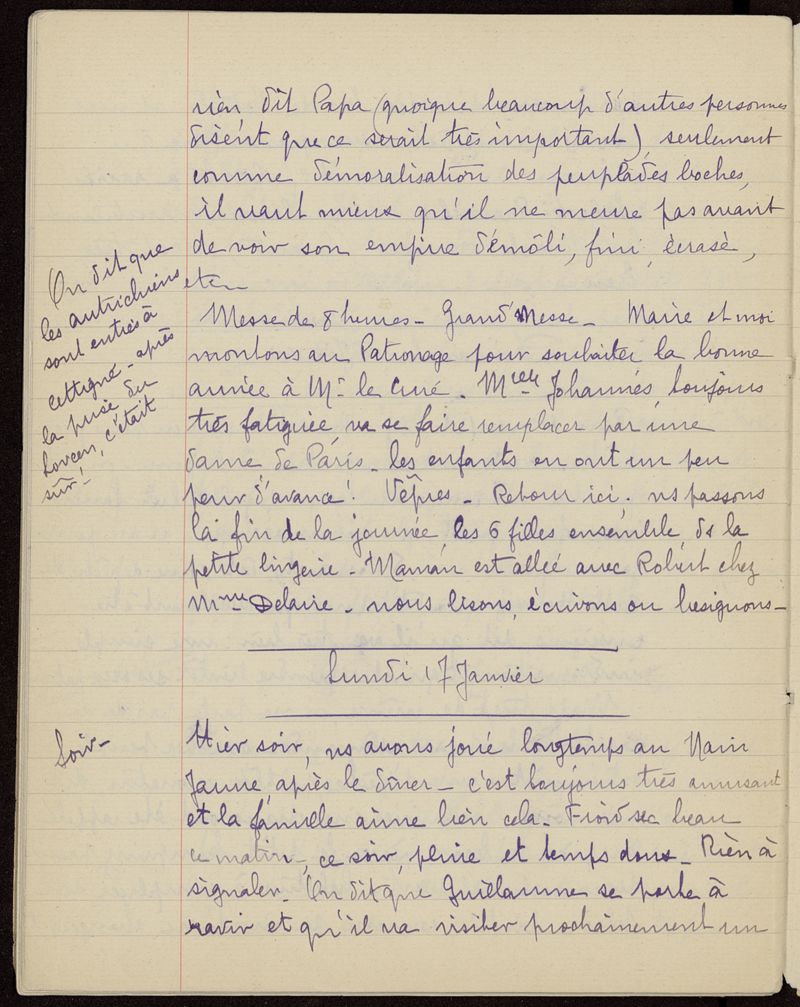 rien dit Papa (quoique beaucoup d'autres personnes
disent que ce serait très important), seulement
comme démoralisation des peuplades boches,
il vaut mieux qu'il ne meure pas avant
de voir son empire démoli, fini, écrasé,
etc_
On dit que
les autrichiens
sont entrés à
cettigné - après
la prise du
Lovcen, c'était
sûr!
Messe de 8 heures - Grand'Messe - Marie et moi
montons au Patronage pour souhaiter la bonne
année à Mr le Curé. Melle Johannès, toujours
très fatiguée, va se faire remplacer par une
dame de Paris - les enfants en ont un peu
peur d'avance! Vêpres - Retour ici; ns passons
la fin de la journée, les 6 filles ensemble ds la
petite lingerie - Maman est allée avec Robert chez
Mme Delaire - nous lisons, écrivons ou besignons -
Lundi 17 Janvier
Soir -
Hier soir, ns avons joué longtemps au Nain
Jaune, après le dîner - c'est toujours très amusant
et la famille aime bien cela. Froid sec beau
ce matin -, ce soir, pluie et temps doux - Rien à
signaler - On dit que Guillaume se porte à
ravir et qu'il va visiter prochainement un